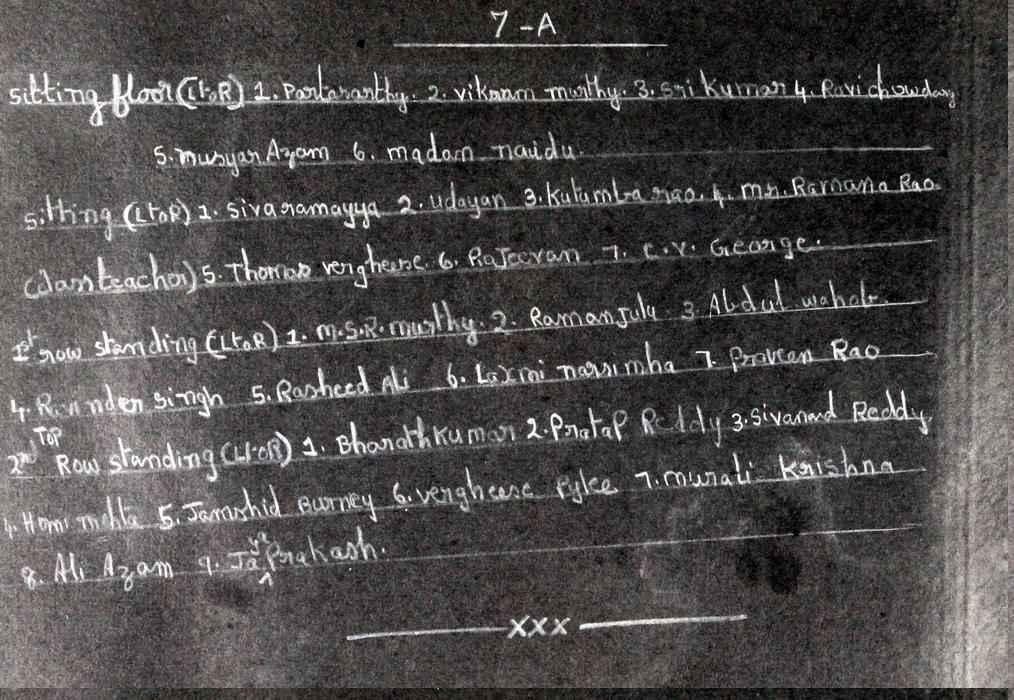 7-A
sitting floor (LtoR) 1. Partasarthy. 2. vikram murthy. 3. Sri Kumar 4. Ravi chowdary
5. musyar Azam 6. madan naidu.
sitting (LtoR) 1. Sivaramayya 2. udayan 3. Kutumba rao. 4. mr. Ramana Rao
(class teacher) 5. Thomas verghese. 6. Rajeevan 7. C.V. George.
1st row standing (LtoR) 1. M.S.R. murthy. 2. Ramanjulu 3. Abdul wahab.
4. Ravinder singh 5. Rasheed Ali 6. Laxmi narsimha 7. Praveen Rao
2nd Top Row standing (LtoR) 1. Bharath Kumar 2. Pratap Reddy 3. Sivanand Reddy
4. Homi mehta 5. Jamshid Burney 6. vergheese Pylee 7. murali Krishna
8. Ali Azam 9. Jaya Prakash.
xxx